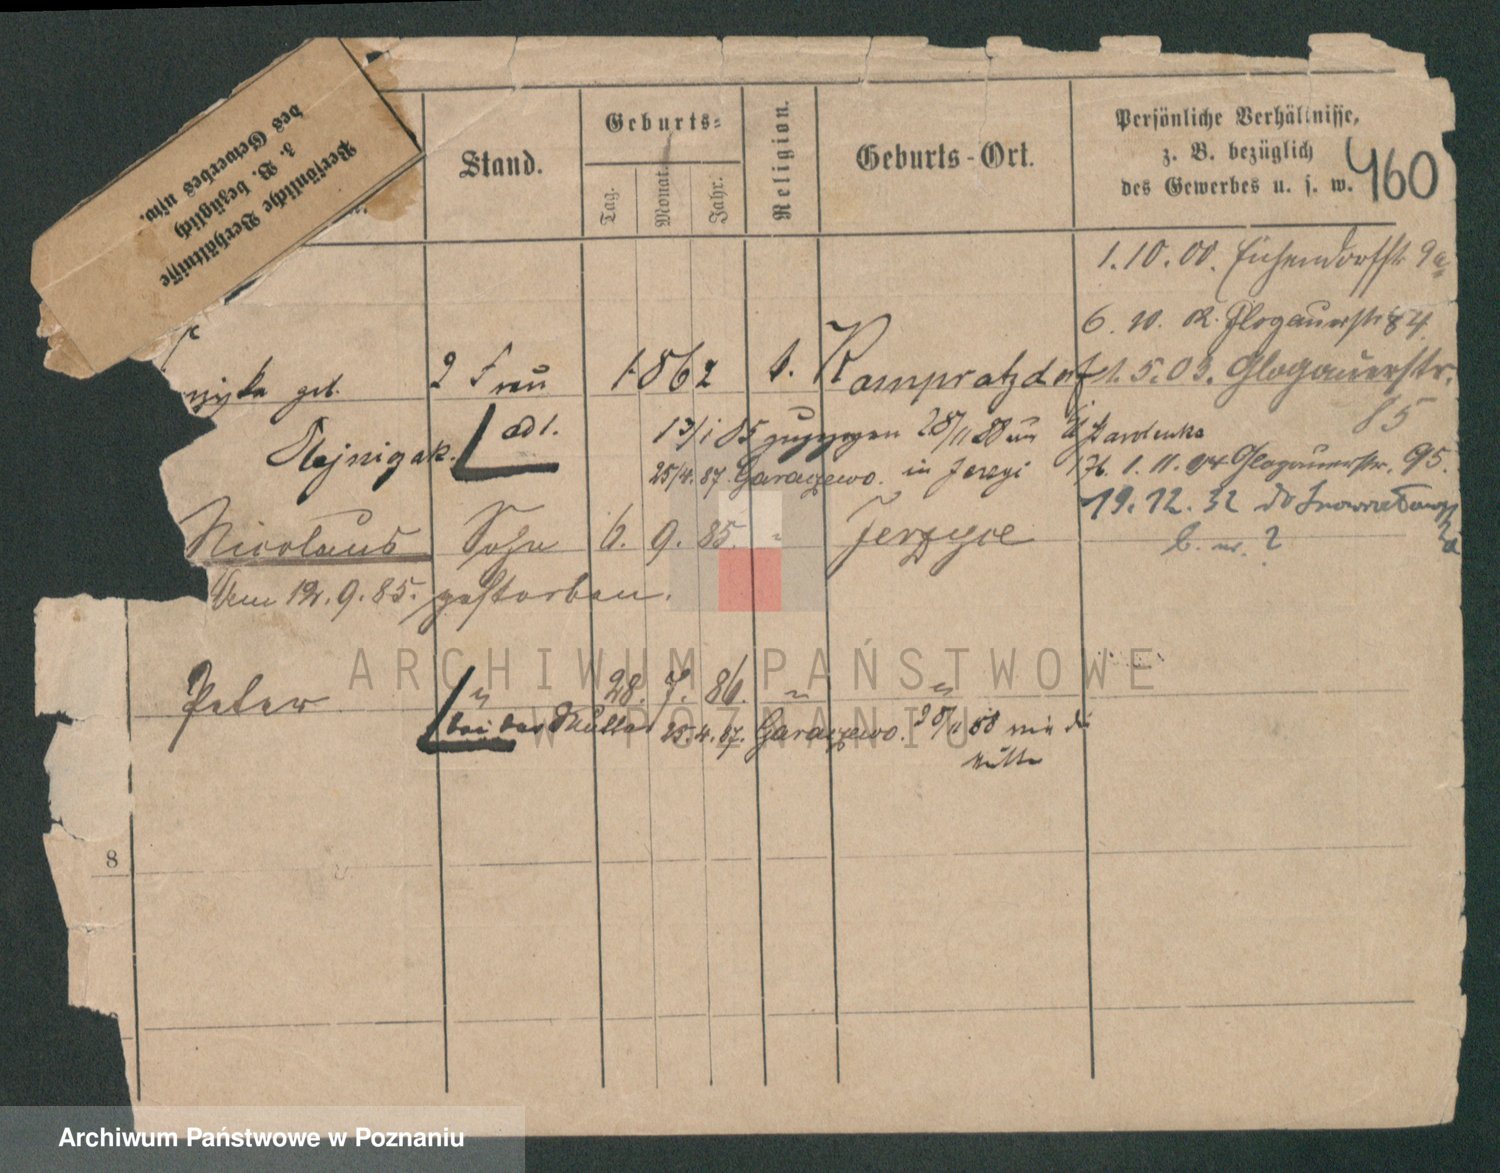 Persönliche Verhältnisse
z. B. bezüglich
des Gewerbes usw.
Stand.
Geburts-
Tag.
Monat.
Jahr.
Religion.
Geburts-Ort.
Persönliche Verhältnisse,
z. B. bezüglich
des Gewerbes u. s. w.
460
1.10.00. Eichendorffstr 9a
6. 10. 02. Glogauerstr 84
geb. 2 Frau 1862 k. 1.5.03. Glogauerstr.
85
adl. 13/1 85 zugezogen 28/11 88 aus
25/4. 87. Garaczewo. in Jerzyi 176. 1. 11. 04 Glogauerstr. 95.
19. 12. 32
Nicolaus Sohn 6. 9. 85. " Jerzyce
Am 12. 9. 85. gestorben.
Peter " 28. 7. 86. " "
bei der Mutter 25. 4. 87. Garaczewo. 28/11 88
8
ARCHIWUM PAŃSTWOWE
W POZNANIU
Archiwum Państwowe w Poznaniu